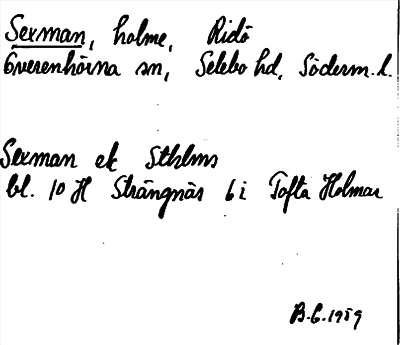 Sexman, holme, Ridö
Överenhörna sn, Selebo hd, Söderm. l.
Sexman ek Sthlms
bl. 10 H Strängnäs 6 i Tofta Holmar
B.G. 1959